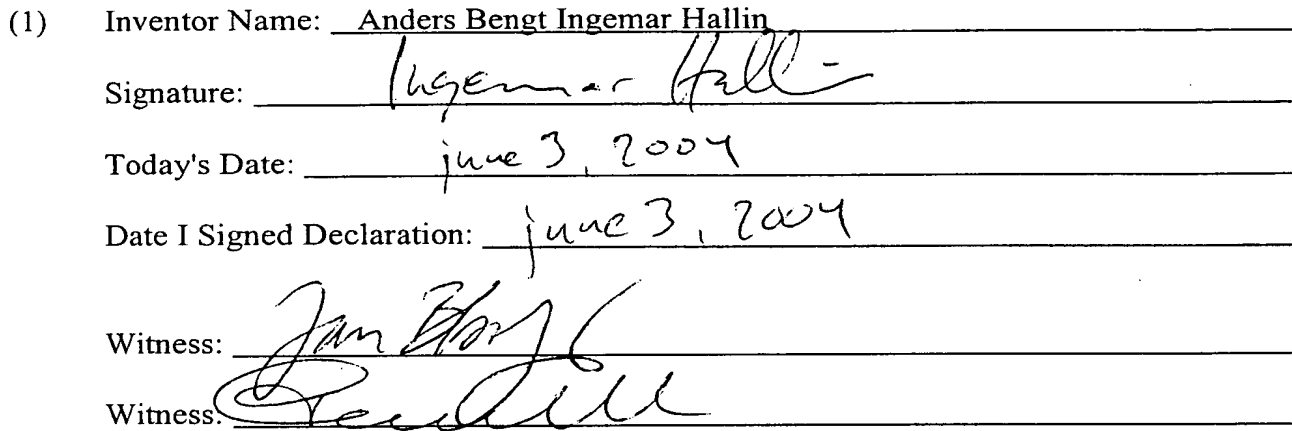 (1) Inventor Name: Anders Bengt Ingemar Hallin
Signature: Ingemar Hallin
Today's Date: june 3, 2004
Date I Signed Declaration: june 3, 2004
Witness: Jan
Witness: